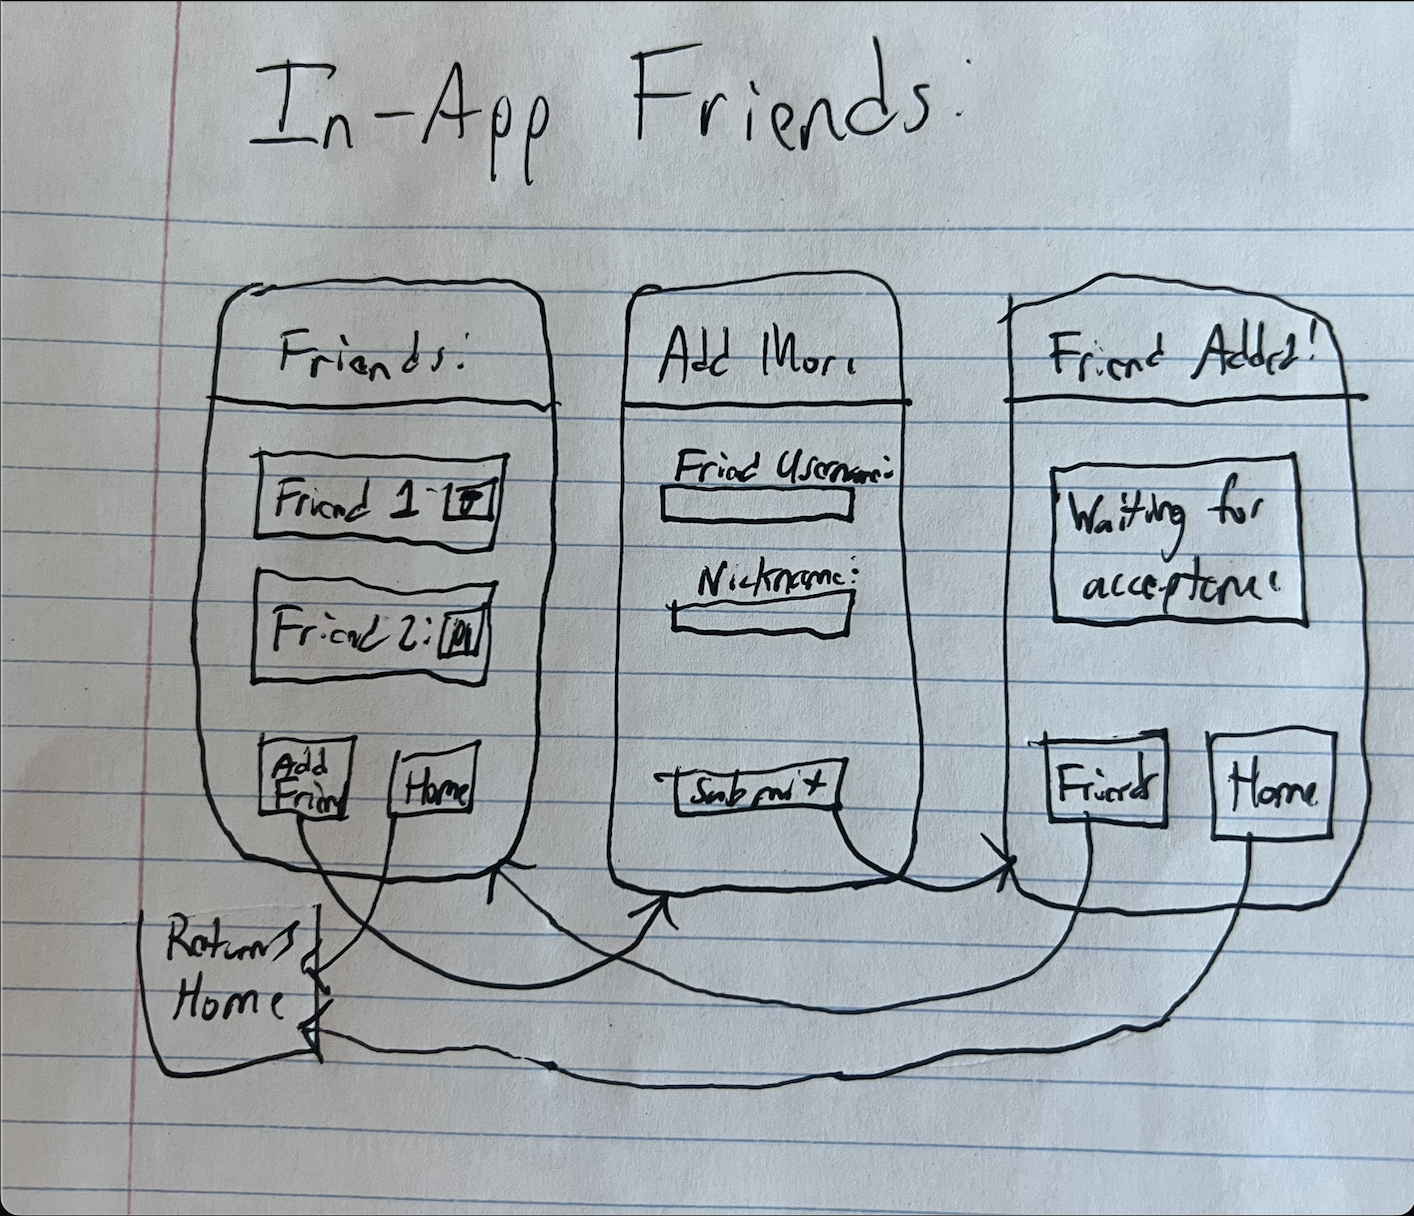 In-App Friends:
Friends:
Friend 1:
Friend 2:
Add
Friend
Home
Add More
Friend Username:
Nickname:
Submit
Friend Added!
Waiting for
acceptance
Friends
Home
Returns
Home